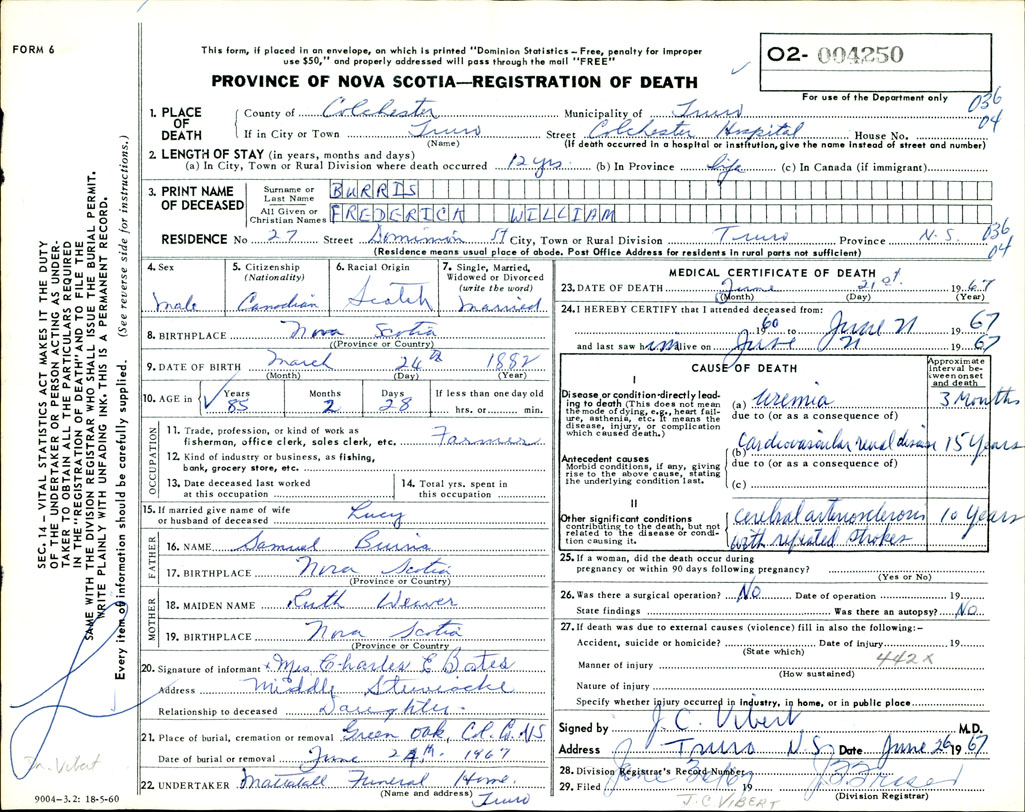 FORM 6
This form, if placed in an envelope, on which is printed "Dominion Statistics – Free, penalty for improper
use $50," and properly addressed will pass through the mail "FREE"
PROVINCE OF NOVA SCOTIA—REGISTRATION OF DEATH
02- 004250
For use of the Department only
036
04
1. PLACE OF DEATH
County of Colchester Municipality of Truro
If in City or Town Truro Street Colchester Hospital House No.
(Name) (If death occurred in a hospital or institution, give the name instead of street and number)
2. LENGTH OF STAY (in years, months and days)
(a) In City, Town or Rural Division where death occurred 12 yrs. (b) In Province life (c) In Canada (if immigrant)
3. PRINT NAME OF DECEASED
Surname or Last Name BURRIS
All Given or Christian Names FREDERICK WILLIAM
RESIDENCE No 27 Street Dominion St City, Town or Rural Division Truro Province N.S. 036
04
(Residence means usual place of abode. Post Office Address for residents in rural parts not sufficient)
4. Sex Male
5. Citizenship (Nationality) Canadian
6. Racial Origin Scotch
7. Single, Married, Widowed or Divorced (write the word) Married
8. BIRTHPLACE Nova Scotia
(Province or Country)
9. DATE OF BIRTH March 24th 1882
(Month) (Day) (Year)
10. AGE in Years 85 Months 2 Days 28 If less than one day old hrs. or min.
OCCUPATION
11. Trade, profession, or kind of work as fisherman, office clerk, sales clerk, etc. Farmer
12. Kind of industry or business, as fishing, bank, grocery store, etc.
13. Date deceased last worked at this occupation
14. Total yrs. spent in this occupation
15. If married give name of wife or husband of deceased Lucy
FATHER
16. NAME Samuel Burris
17. BIRTHPLACE Nova Scotia
(Province or Country)
MOTHER
18. MAIDEN NAME Ruth Weaver
19. BIRTHPLACE Nova Scotia
(Province or Country)
20. Signature of informant x Mrs Charles E Bates
Address Middle Stewiacke
Relationship to deceased Daughter
21. Place of burial, cremation or removal Green Oak, Col. Co. NS
Date of burial or removal June 24th 1967
22. UNDERTAKER Mattatall Funeral Home.
(Name and address) Truro
9004-3.2: 18-5-60
MEDICAL CERTIFICATE OF DEATH
23. DATE OF DEATH June 21st. 1967
(Month) (Day) (Year)
24. I HEREBY CERTIFY that I attended deceased from:
1960 to June 21 1967
and last saw him alive on June 21 1967
CAUSE OF DEATH
Approximate interval between onset and death
I
Disease or condition directly leading to death (This does not mean the mode of dying, e.g., heart failure, asthenia, etc. It means the disease, injury, or complication which caused death.)
(a) Uremia 3 Months
due to (or as a consequence of)
Antecedent causes
Morbid conditions, if any, giving rise to the above cause, stating the underlying condition last.
(b) Cardiovascular renal disease 15 Years
due to (or as a consequence of)
(c)
II
Other significant conditions contributing to the death, but not related to the disease or condition causing it.
cerebral arteriosclerosis 10 Years
with repeated strokes
25. If a woman, did the death occur during pregnancy or within 90 days following pregnancy?
(Yes or No)
26. Was there a surgical operation? No Date of operation 19
State findings Was there an autopsy? No
27. If death was due to external causes (violence) fill in also the following:-
Accident, suicide or homicide? Date of injury 19
(State which)
442x
Manner of injury
(How sustained)
Nature of injury
Specify whether injury occurred in industry, in home, or in public place
Signed by J. C. Vibert M.D.
Address Truro N.S. Date June 26 1967
28. Division Registrar's Record Number
29. Filed 19
(Division Registrar)
J. C VIBERT
SEC. 14 – VITAL STATISTICS ACT MAKES IT THE DUTY
OF THE UNDERTAKER OR PERSON ACTING AS UNDER-
TAKER TO OBTAIN ALL THE PARTICULARS REQUIRED
IN THE "REGISTRATION OF DEATH" AND TO FILE THE
SAME WITH THE DIVISION REGISTRAR WHO SHALL ISSUE THE BURIAL PERMIT.
WRITE PLAINLY WITH UNFADING INK. THIS IS A PERMANENT RECORD.
Every item of information should be carefully supplied. (See reverse side for instructions.)
Vibert